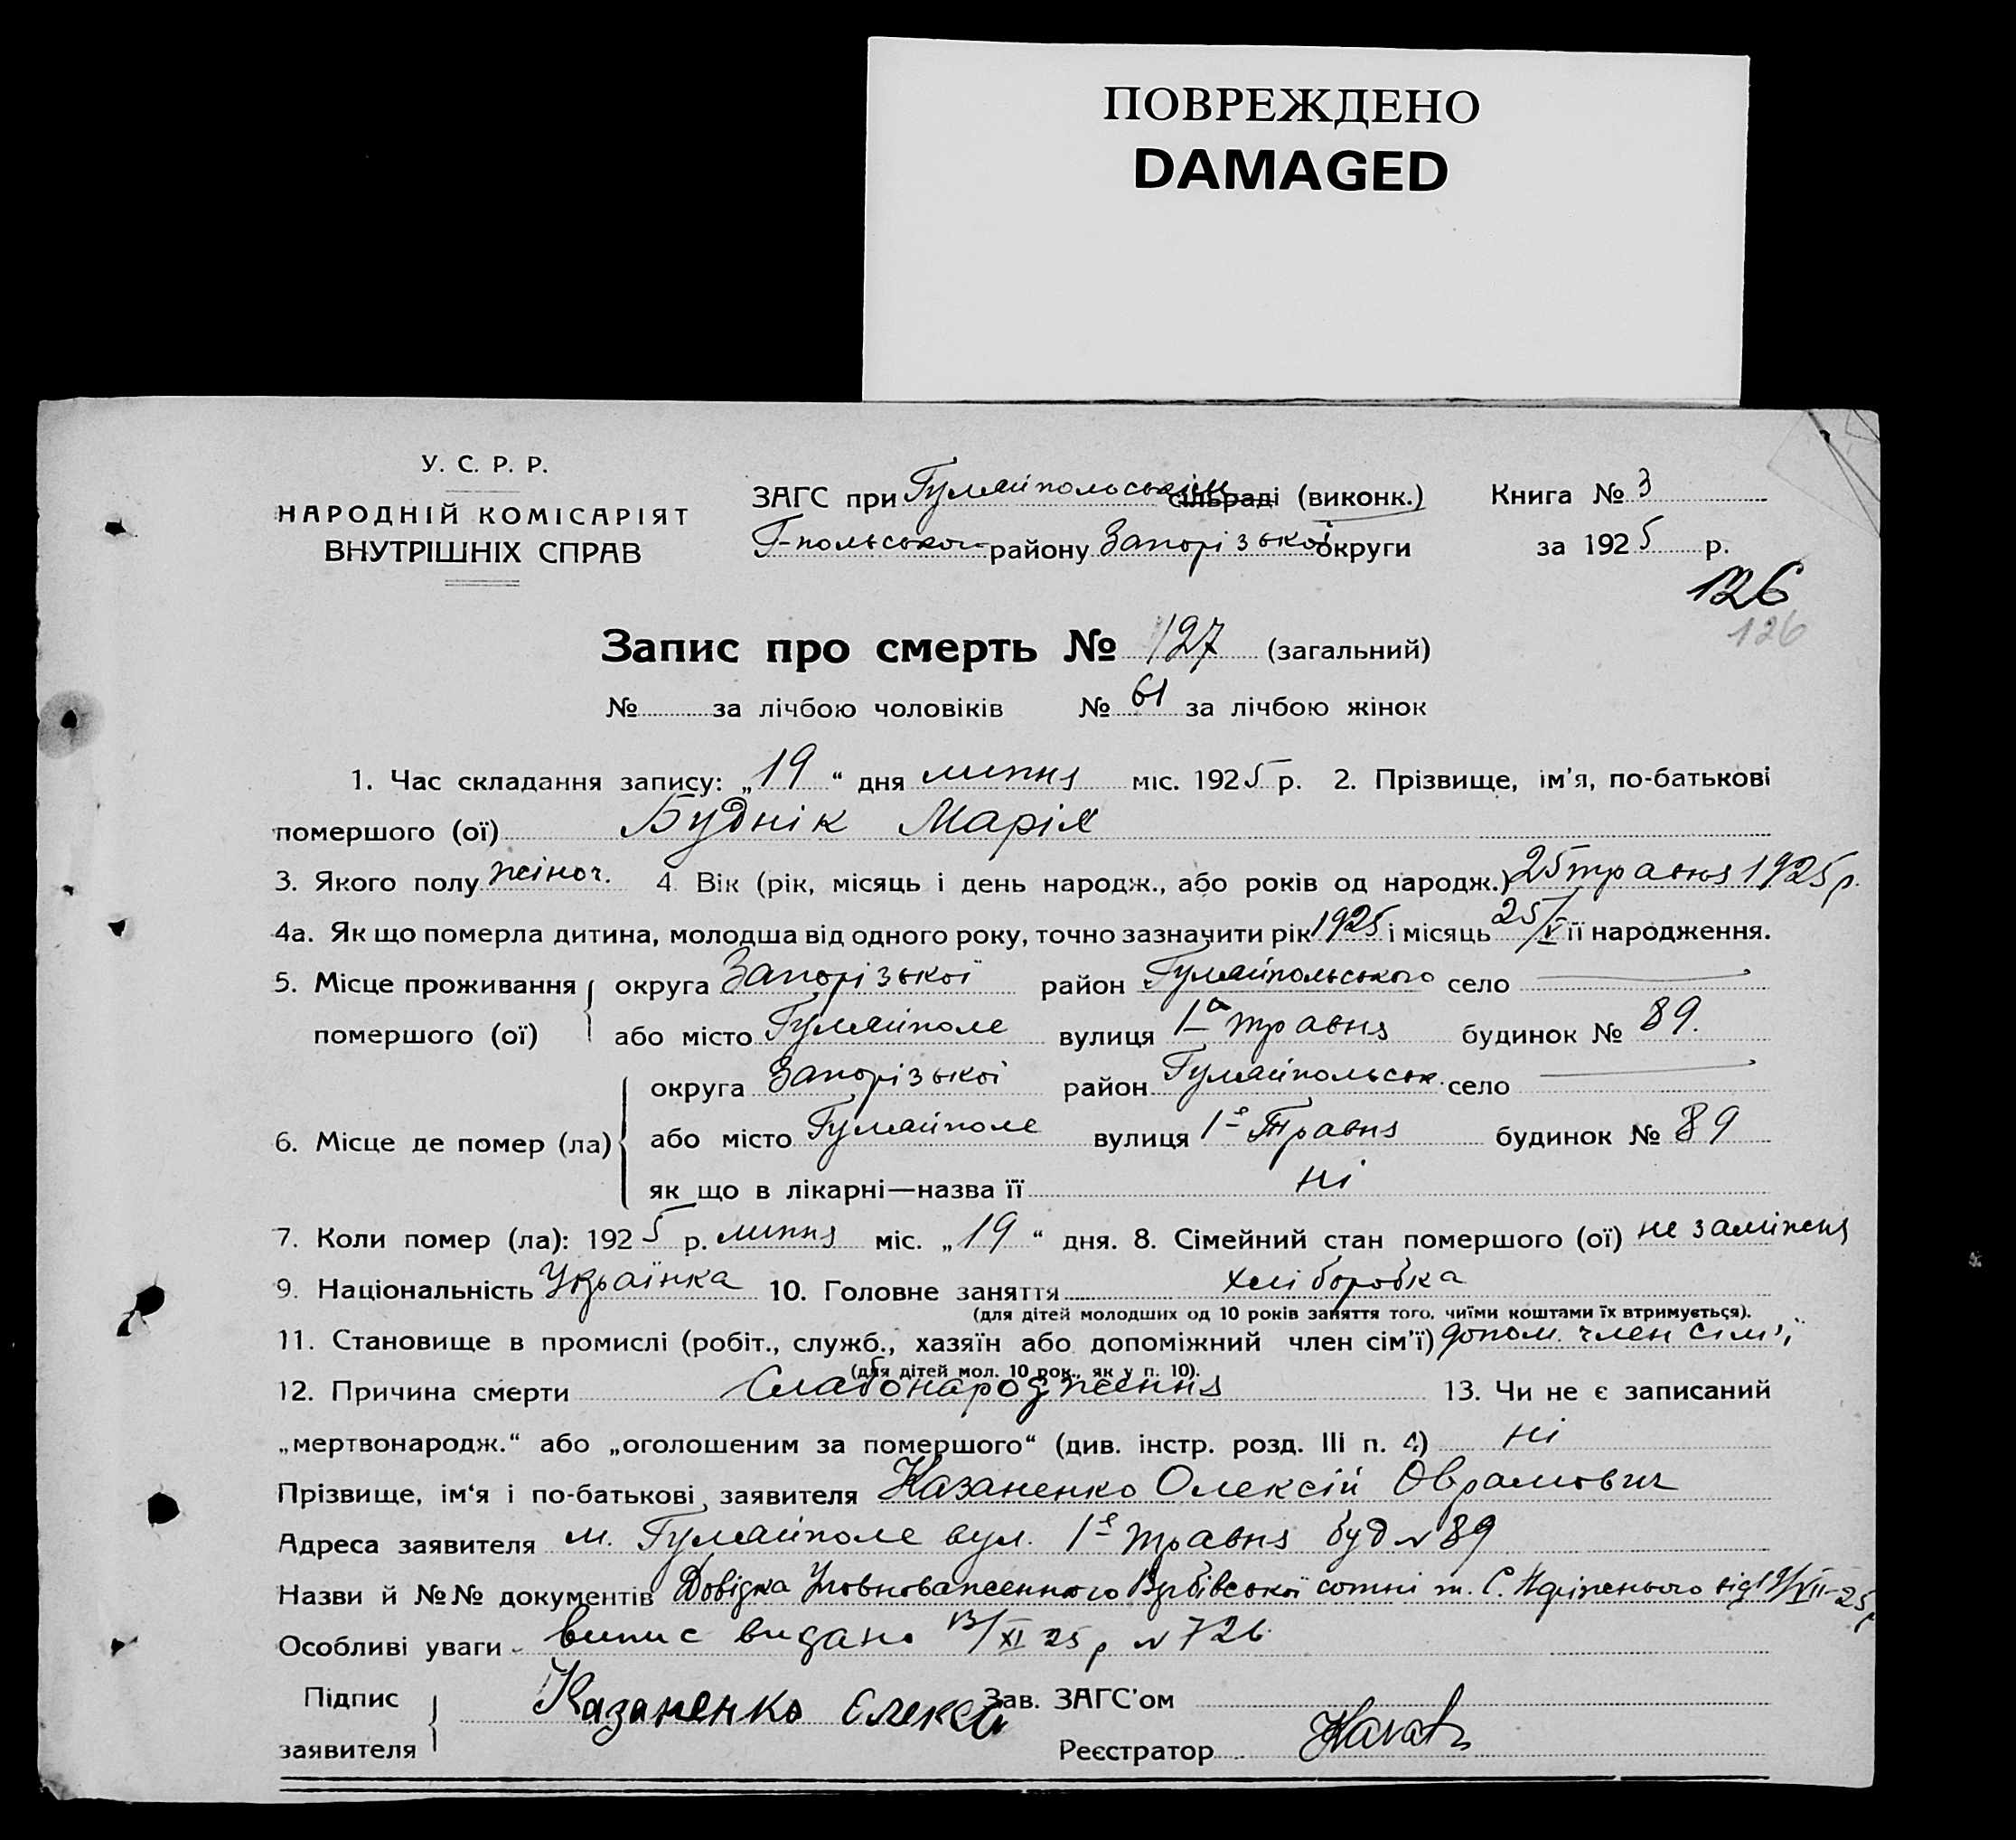 ПОВРЕЖДЕНО
DAMAGED
У. С. Р. Р.
НАРОДНІЙ КОМІСАРІЯТ
ВНУТРІШНІХ СПРАВ
ЗАГС при Гуляйпольськім сільраді (виконк.)
Г-польського району Запорізької округи
Книга № 3
за 1925 р.
126
126
Запис про смерть № 127 (загальний)
№ за лічбою чоловіків № 61 за лічбою жінок
1. Час складання запису: „19“ дня липня міс. 1925 р. 2. Прізвище, ім'я, по-батькові
помершого (ої) Буднік Марія
3. Якого полу жіноч. 4. Вік (рік, місяць і день народж., або років од народж.) 25 травня 1925 р.
4а. Як що померла дитина, молодша від одного року, точно зазначити рік 1925 і місяць 25/V її народження.
5. Місце проживання помершого (ої) округа Запорізької район Гуляйпольського село
або місто Гуляйполе вулиця 1а травня будинок № 89.
6. Місце де помер (ла) округа Запорізької район Гуляйпольськ. село
або місто Гуляйполе вулиця 1е Травня будинок № 89
як що в лікарні—назва її ні
7. Коли помер (ла): 1925 р. липня міс. „19“ дня. 8. Сімейний стан помершого (ої) не заміжня
9. Національність Українка 10. Головне заняття хліборобка
(для дітей молодших од 10 років заняття того, чиїми коштами їх втримується).
11. Становище в промислі (робіт., служб., хазяїн або допоміжний член сім'ї) допом. член сім'ї
(для дітей мол. 10 рок., як у п. 10).
12. Причина смерти Слабонародження 13. Чи не є записаний
„мертвонародж.“ або „оголошеним за помершого“ (див. інстр. розд. III п. 4) ні
Прізвище, ім'я і по-батькові заявителя Казаненко Олексій Оврамович
Адреса заявителя м. Гуляйполе вул. 1е травня буд № 89
Назви й №№ документів Довідка Уповноваженного Вербівської сотні т. С. від 19/VII-25р
Особливі уваги випис видано 13/XI 25 р № 726
Підпис заявителя Казаненко Єлексій
Зав. ЗАГС'ом
Реєстратор